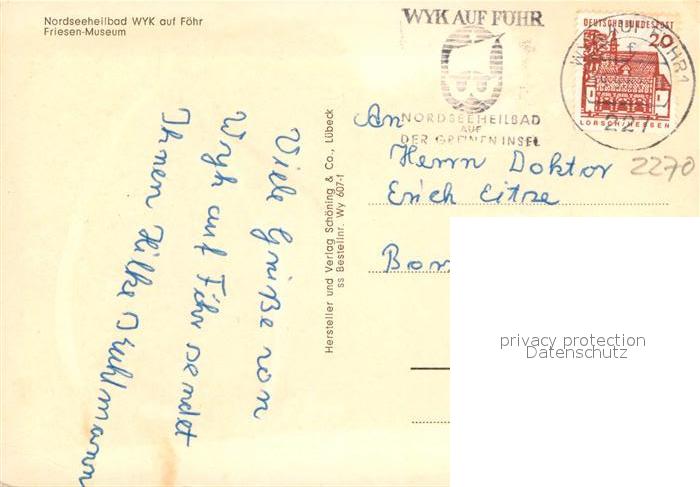 Nordseeheilbad WYK auf Föhr
Friesen-Museum
WYK AUF FÖHR
NORDSEEHEILBAD
AUF
DER GRÜNEN INSEL
DEUTSCHE BUNDESPOST
20
LORSCH/HESSEN
227
2270
An
Herrn Doktor
Erich Eitze
Bon
privacy protection
Datenschutz
Hersteller und Verlag Schöning & Co., Lübeck
ss Bestellnr. Wy 607-1
Viele Grüße von
Wyh auf Föhr sendet
Ihnen Hilke